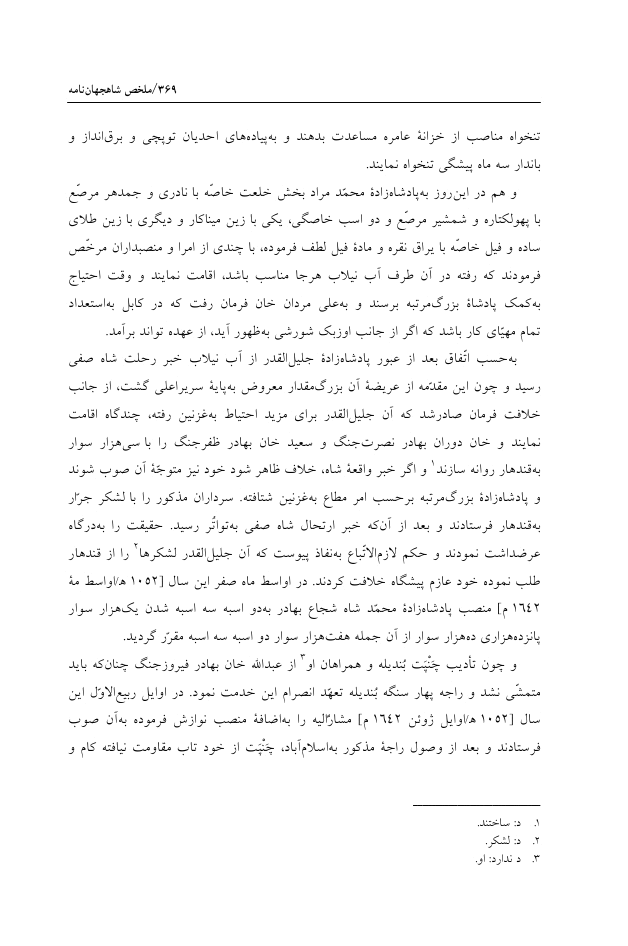 ۳۶۹/ملخص شاهجهان‌نامه
تنخواه مناصب از خزانهٔ عامره مساعدت بدهند و به‌پیاده‌های احدیان توپچی و برق‌انداز و
باندار سه ماه پیشگی تنخواه نمایند.
و هم در این‌روز به‌پادشاه‌زادهٔ محمّد مراد بخش خلعت خاصّه با نادری و جمدهر مرصّع
با پهولکتاره و شمشیر مرصّع و دو اسب خاصگی، یکی با زین میناکار و دیگری با زین طلای
ساده و فیل خاصّه با یراق نقره و مادهٔ فیل لطف فرموده، با چندی از امرا و منصبداران مرخّص
فرمودند که رفته در آن طرف آب نیلاب هرجا مناسب باشد، اقامت نمایند و وقت احتیاج
به‌کمک پادشاهٔ بزرگ‌مرتبه برسند و به‌علی مردان خان فرمان رفت که در کابل به‌استعداد
تمام مهیّای کار باشد که اگر از جانب اوزبک شورشی به‌ظهور آید، از عهده تواند برآمد.
به‌حسب اتّفاق بعد از عبور پادشاه‌زادهٔ جلیل‌القدر از آب نیلاب خبر رحلت شاه صفی
رسید و چون این مقدّمه از عریضهٔ آن بزرگ‌مقدار معروض به‌پایهٔ سریراعلی گشت، از جانب
خلافت فرمان صادرشد که آن جلیل‌القدر برای مزید احتیاط به‌غزنین رفته، چندگاه اقامت
نمایند و خان دوران بهادر نصرت‌جنگ و سعید خان بهادر ظفرجنگ را با سی‌هزار سوار
به‌قندهار روانه سازند۱ و اگر خبر واقعهٔ شاه، خلاف ظاهر شود خود نیز متوجّهٔ آن صوب شوند
و پادشاه‌زادهٔ بزرگ‌مرتبه برحسب امر مطاع به‌غزنین شتافته. سرداران مذکور را با لشکر جرّار
به‌قندهار فرستادند و بعد از آن‌که خبر ارتحال شاه صفی به‌تواتُر رسید. حقیقت را به‌درگاه
عرضداشت نمودند و حکم لازم‌الاتّباع به‌نفاذ پیوست که آن جلیل‌القدر لشکرها۲ را از قندهار
طلب نموده خود عازم پیشگاه خلافت کردند. در اواسط ماه صفر این سال [۱۰۵۲ ه‍/اواسط مهٔ
۱۶۴۲ م] منصب پادشاه‌زادهٔ محمّد شاه شجاع بهادر به‌دو اسبه سه اسبه شدن یک‌هزار سوار
پانزده‌هزاری ده‌هزار سوار از آن جمله هفت‌هزار سوار دو اسبه سه اسبه مقرّر گردید.
و چون تأدیب چَنْپَت بُندیله و همراهان او۳ از عبدالله خان بهادر فیروزجنگ چنان‌که باید
متمشّی نشد و راجه پهار سنگه بُندیله تعهّد انصرام این خدمت نمود. در اوایل ربیع‌الاوّل این
سال [۱۰۵۲ ه‍/اوایل ژوئن ۱۶۴۲ م] مشارٌالیه را به‌اضافهٔ منصب نوازش فرموده به‌آن صوب
فرستادند و بعد از وصول راجهٔ مذکور به‌اسلام‌آباد، چَنْپَت از خود تاب مقاومت نیافته کام و
۱. د: ساختند.
۲. د: لشکر.
۳. د ندارد: او.